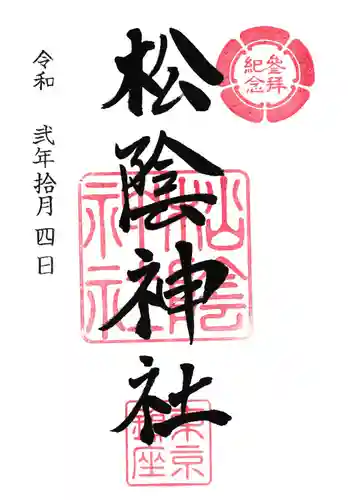 參拜
紀念
松陰神社
松陰
神社
東京
鎮座
令和 弐年拾月四日